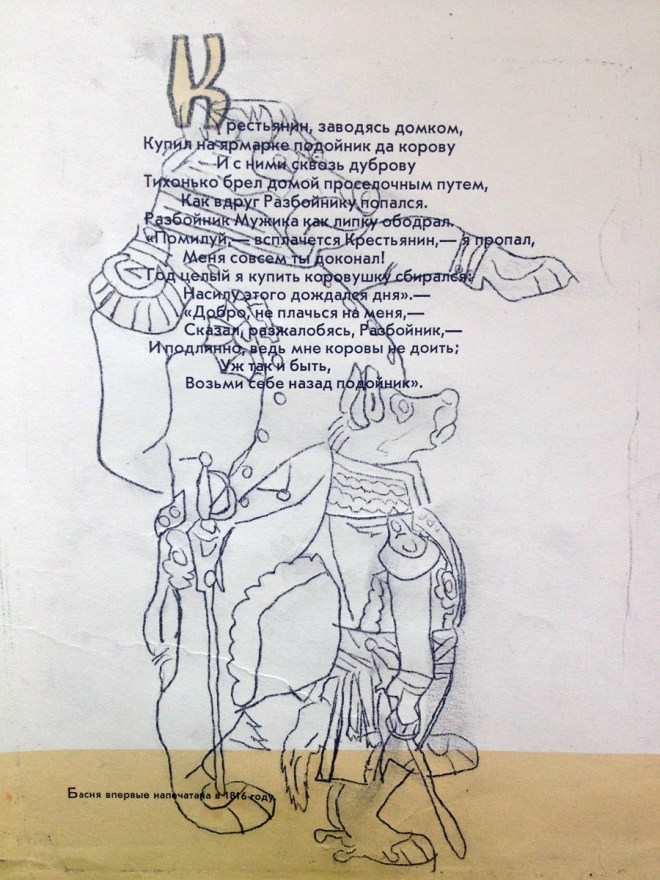 Крестьянин, заводясь домком,
Купил на ярмарке подойник да корову
И с ними сквозь дуброву
Тихонько брел домой проселочным путем,
Как вдруг Разбойнику попался.
Разбойник Мужика как липку ободрал.
«Помилуй,— всплачется Крестьянин,— я пропал,
Меня совсем ты доконал!
Год целый я купить коровушку сбирался:
Насилу этого дождался дня».—
«Добро, не плачься на меня,—
Сказал, разжалобясь, Разбойник,—
И подлинно, ведь мне коровы не доить;
Уж так и быть,
Возьми себе назад подойник».
Басня впервые напечатана в 1816 году.